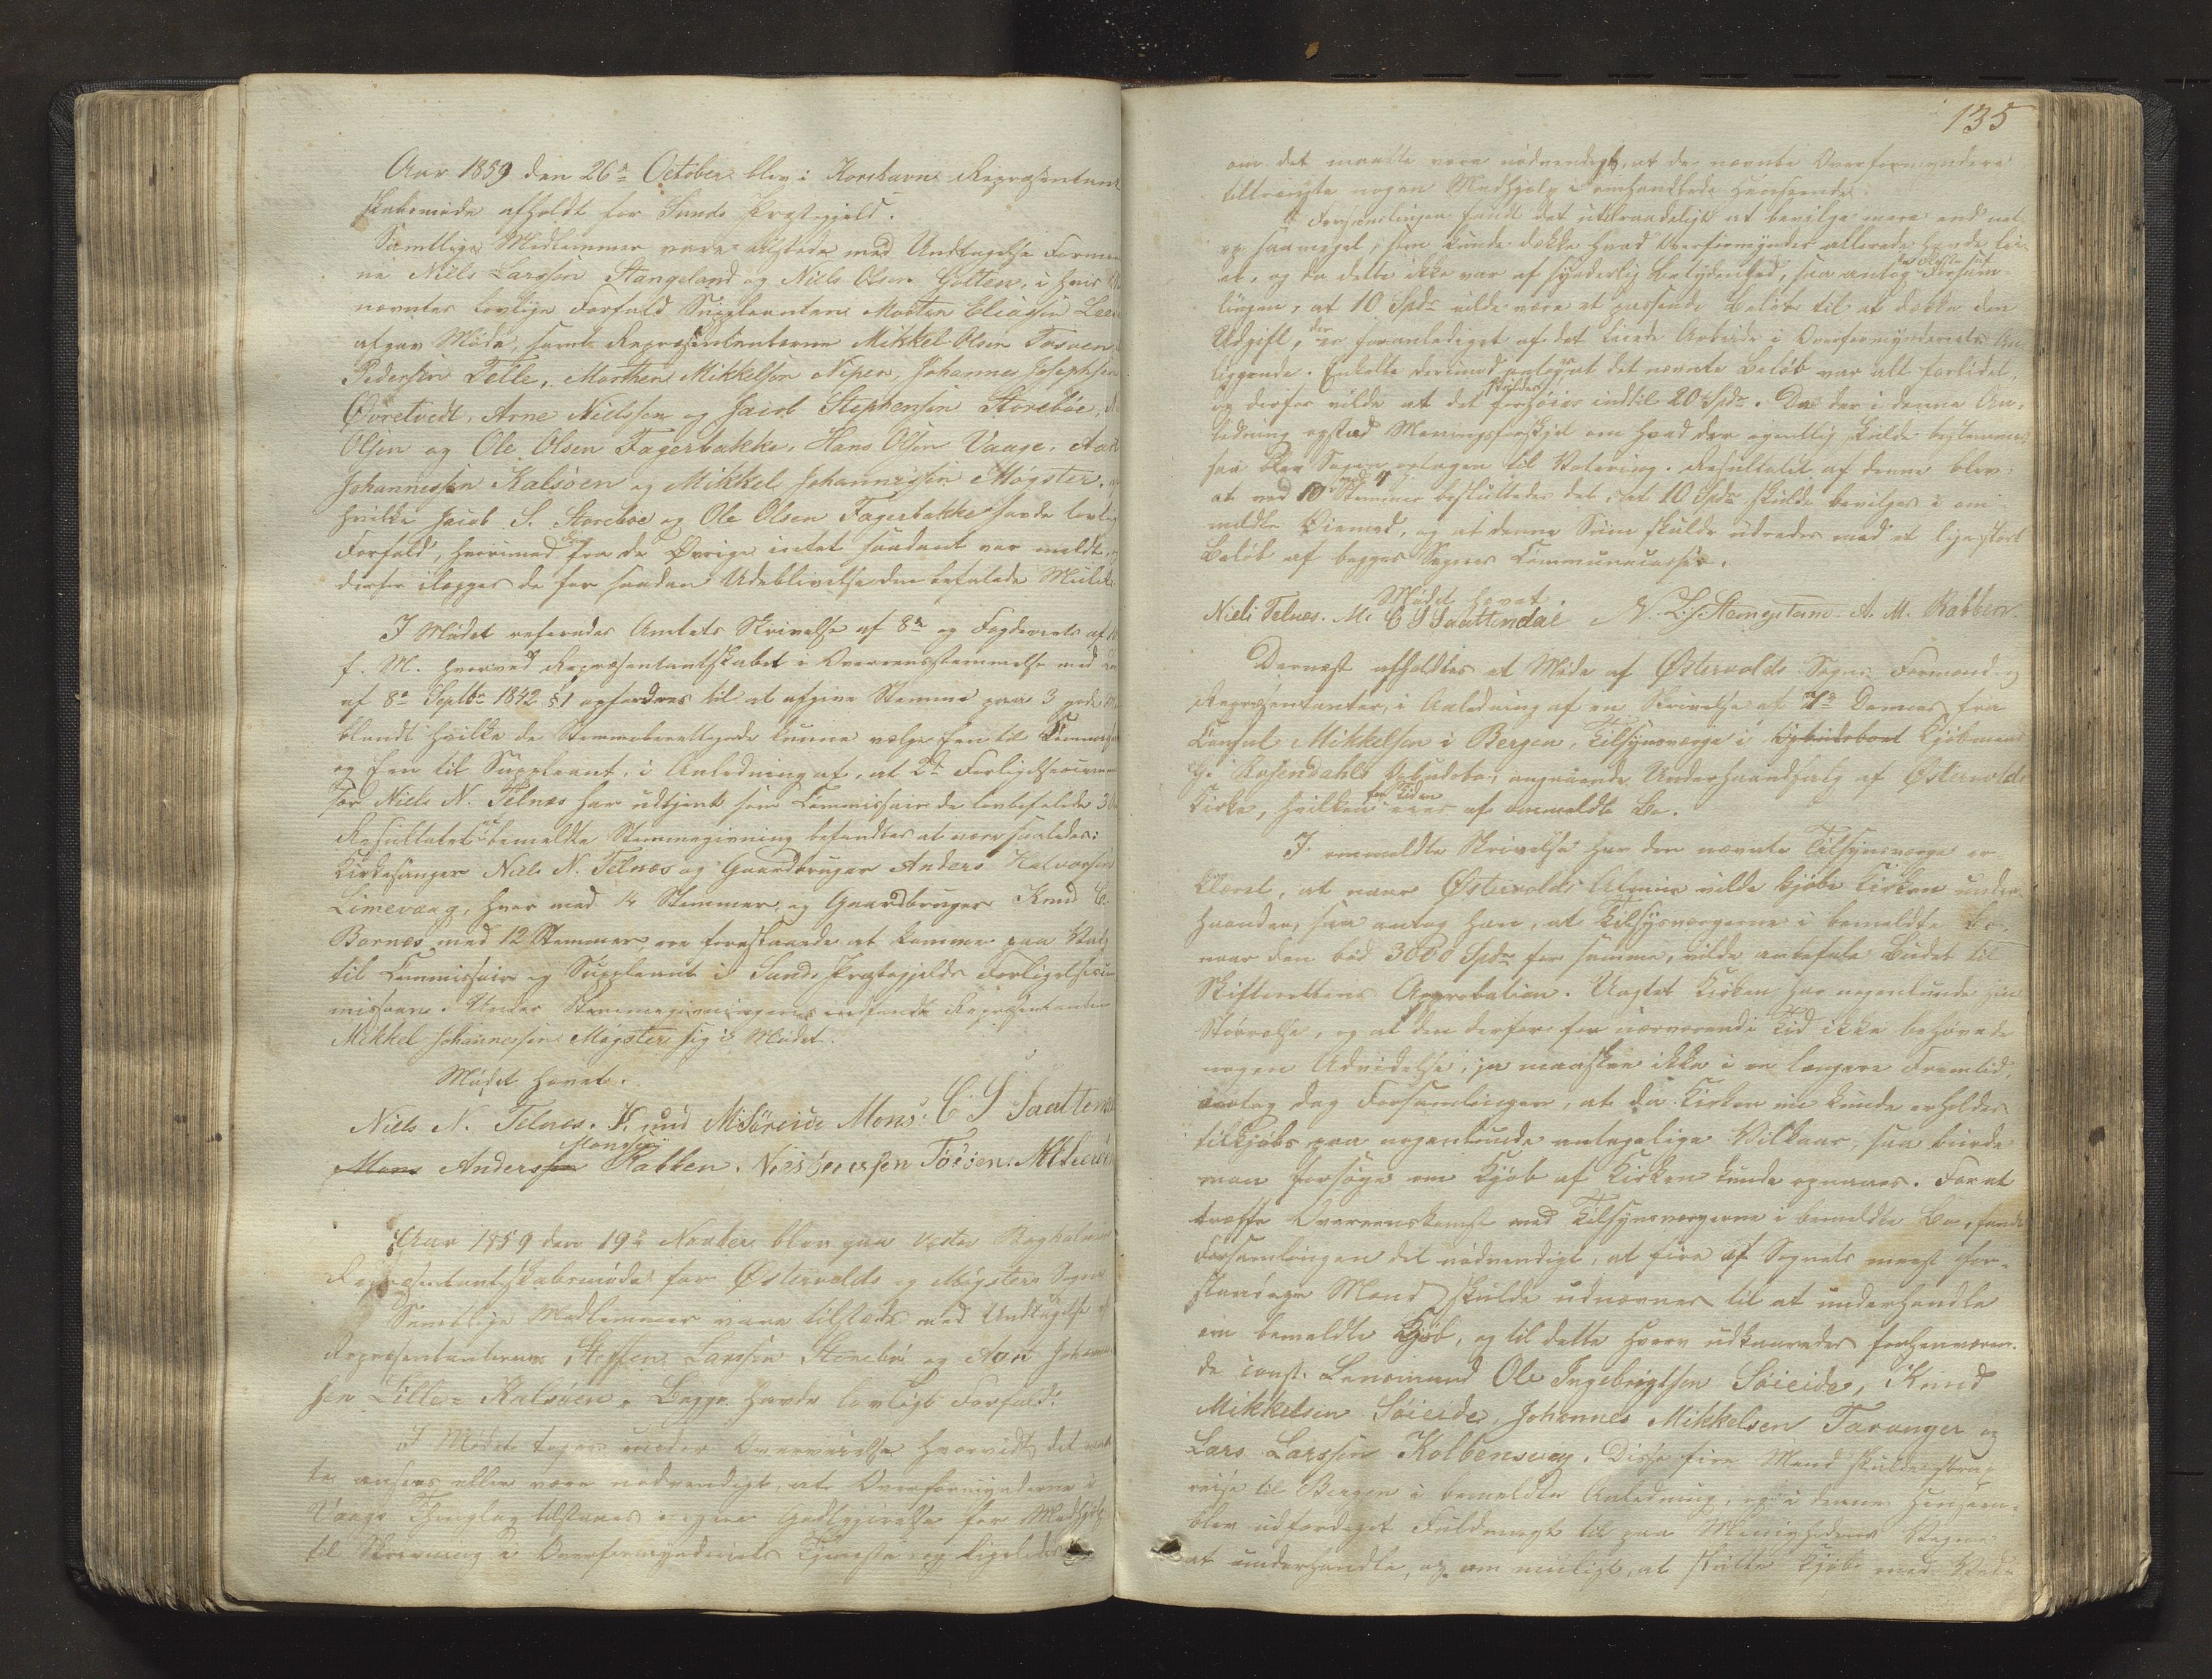 Aar 1859 den 26de October blev i Korshavn Repræsentant
skabsmøde afholdt for Sunds Præstegjeld.
Samtlige Medlemmer vare tilstede med Undtagelse Formæn
ne Niels Larssen Stangeland og Niels Olsen Golten, i hvis
nævntes lovlige Forfald Suppleanten Morten Eliassen
afgav Møde, samt Repræsentanterne Mikkel Olsen Tosøen
Pedersen Telle, Morthen Mikkelsen Nipen, Johannes Josephsen
Øvretvedt, Arne Nielssen og Jacob Stephensen Storebøe,
Olsen og Ole Olsen Fagerbakke, Hans Olsen Vaage,
Johannessen Kalsøen og Mikkel Johannessen Møgster, af
hvilke Jacob S. Storebøe og Ole Olsen Fagerbakke havde lovlig
Forfald, hvorimod fra de Øvrige intet saadant var meldt,
derfor ilægges de for saadan Udeblivelse den befalede Mulkt
I Mødet refereredes Amtets Skrivelse af 8de og Fogderiets af
f. M. hvorved Repræsentantskabet i Overeensstemmelse med Lov
af 8de Septbr 1842 §1 opfordres til at afgive Stemme paa 3 gode
blandt hvilke de Stemmeberettigede kunne vælge Een til Commissair
og Een til Suppleant, i Anledning af, at
Niels N. Telnæs har udtjent som Commissair de lovbefalede 3
Resultatet af bemeldte Stemmegivning befandtes at være saaledes:
Kirkesanger Niels N. Telnæs og Gaardbruger Anders Halvorsen
Limevaag, hver med 14 Stemmer, og Gaardbruger Knud
Bornes med 12 Stemmer, ere foreslaaede at komme paa Valg
til Commissair og Suppleant i Sunds Præstegjelds Forligelsescom
mission. Under Stemmegivningen indfandt Repræsentanten
Mikkel Johannessen Møgster sig i Mødet.
Mødet hævet.
Niels N. Telnæs. Knud M. Søreide Mons: C S Saatten
Mons Anderssen Monssen Rabben.
Aar 1859 den 19de Novber blev paa Vester
Repræsentantskabsmøde for Østervolds og Møgsters Sogne
Samtlige Medlemmer vare tilstede med Undtagelse af
Repræsentanterne Steffen Larssen Storebø og Aon Johannes
sen Lille-Kalsøen, Begge havde lovligt Forfald.
I Mødet toges under Overveielse hvorvidt det maat
te ansees eller være nødvendigt, at Overformynderne i
Vaags Thinglag tilstaaes nogen Godtgjørelse for Medhjælp
til Skrivning i Overformynderiets Tjeneste og ligeledes
135
om det maatte være nødvendigt, at de nævnte Overformyndere
tiltrængte nogen Medhjælp i omhandlede Henseende.
Forsamlingen fandt det utilraadeligt at bevilge mere end net-
op saameget, som kunde dække hvad Overformynder allerede havde lei-
et, og da dette ikke var af synderlig Betydenhed, saa antog de fleste af Forsam-
lingen, at 10 Spd. vilde være et passende Beløb til at dække den
Udgift, der er foranlediget af det leiede Arbeide i Overformynderiets An-
liggende. Enkelte derimod antog at det nævnte Beløb var alt forlidet,
og derfor vilde at det skulde forhøies indtil 20 Spd. Da der i denne An-
ledning opstod Meningsforskjel om hvad der egentlig skulde bestemmes
saa blev Sagen optagen til Votering. Resultatet af denne blev:
at med 10 mod 4 Stemmer besluttedes det, at 10 Spd. skulde bevilges i om-
meldte Øiemed, og at denne Sum skulde udredes med et ligestort
Beløb af begges Sognes Communecasser.
Mødet hævet.
Niels Telnes. M. C S Saattendal N. L. Stangeland. A. M. Rabben.
Dernæst afholdtes et Møde af Østervolds Sogns Formænd og
Repræsentanter, i Anledning af en Skrivelse af 7de Dennes fra
Consul Mikkelsen i Bergen, Tilsynsværge i Kjøbmand
G. Rosendahls Opbudsbo, angaaende Underhaandssalg af Østervolds
Kirke, hvilken for Tiden eies af ommeldte Bo.
I ommeldte Skrivelse har den nævnte Tilsynsværge er-
klæret, at naar Østervolds Almue vilde kjøbe Kirken under-
haanden, saa antog han, at Tilsynsværgerne i bemeldte Bo,
naar den bød 3000 Spd. for samme, vilde anbefale Budet til
Skifterettens Approbation. Uagtet Kirken har nogenlunde sin
Størrelse, og at den derfor for nærværende Tid ikke behøvede
nogen Udvidelse, ja maaskee ikke i en længere Fremtid,
antog dog Forsamlingen, at da Kirken nu kunde erholdes
tilkjøbs paa nogenlunde antagelige Vilkaar, saa burde
man forsøge om Kjøb af Kirken kunde opnaaes. For at
træffe Overeenskomst med Tilsynsværgerne i bemeldte Bo, fandt
Forsamlingen det nødvendigt, at fire af Sognets meest for-
standige Mænd skulde udnævnes til at underhandle
om bemeldte Kjøb, og til dette Hverv udkaaredes forhenværen-
de const. Lensmand Ole Ingebrigtsen Søieide, Knud
Mikkelsen Søieide, Johannes Mikkelsen Taranger og
Lars Larssen Kolbensvæg. Disse fire Mænd skulde strax
reise til Bergen i bemeldte Anledning, og i denne Henseende
blev udfærdiget Fuldmagt til paa Menighedens Vegne
at underhandle, og om muligt, at slutte Kjøb med